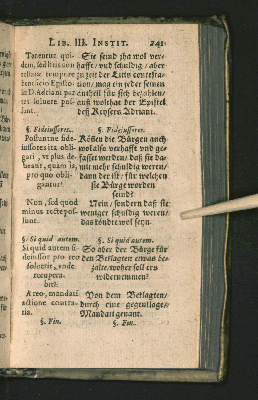 LIB. III. INSTIT. 241.
Tenentur qui-
dem, sed huic
testatæ tempore
benficio Episto-
læ D. Adriani pro
Sie seind zwo wol ver-
hafft / und schuldig / aber
zu zeit der Litis contesta-
tion / mag ein jeder seinen
antheil für sich bezahlen /
auß wolthat der Epistel
deß Keysers Adriani.
§. Fideiussores.
Possuntne fide-
iussores ita obli-
gari, vt plus de-
beant, quàm is,
pro quo obli-
gantur?
§. Fideiussores.
Können die Bürgen auch
wol also verhafft und ge-
fasset werden / daß sie da-
mit mehr schuldig weren /
dann der ist / für welchen
sie Bürge worden
seind?
Non, sed quod
minus recte pos-
sunt.
Nein / sondern daß sie
weniger schuldig weren /
das köndte wol seyn.
§. Si quid autem.
Si quid autem fi-
deiussor pro reo
soluerit, vnde
recupera-
bit?
§. Si quid autem.
So aber der Bürge für
den Beklagten etwas be-
zalte / woher soll ers
widernemmen?
A reo, mandati
actione contra-
ria.
Von dem Beklagten /
durch eine gegenklage /
Mandati genant.
§. Fin.
§. Fin.